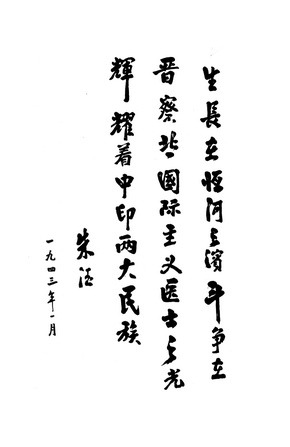 生長在恒河之濱斗争在
晋察冀國际主义医士之光
輝耀着中印两大民族
朱德
一九四三年一月